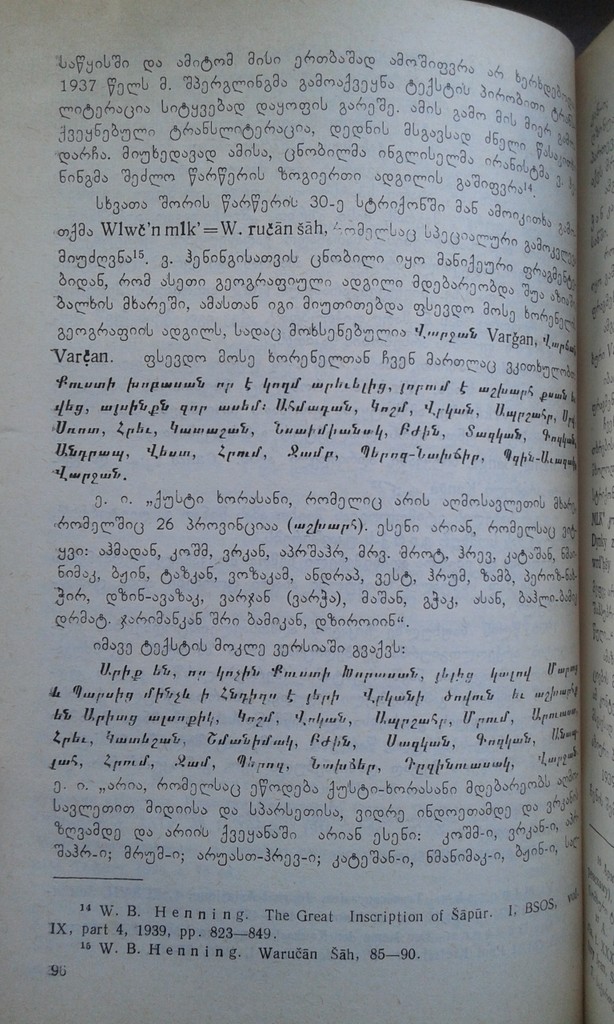 საწყისში და ამიტომ მისი ერთბაშად ამოშიფვრა არ ხერხდებოდა
1937 წელს მ. შპერგლინგმა გამოაქვეყნა ტექსტის პირობითი
ლიტერაცია სიტყვებად დაყოფის გარეშე. ამის გამო მის მიერ
ქვეყნებული ტრანსლიტერაცია, დედნის მსგავსად ძნელი
დარჩა. მიუხედავად ამისა, ცნობილმა ინგლისელმა ირანისტმა
ნინგმა შეძლო წარწერის ზოგიერთი ადგილის გაშიფვრა¹⁴.
სხვათა შორის წარწერის 30-ე სტრიქონში მან ამოიკითხა
თქმა Wlwč’n mlk’=W. ručān šāh, რომელსაც სპეციალური
მიუძღვნა¹⁵. ვ. ჰენინგისათვის ცნობილი იყო მანიქეური
ბიდან, რომ ასეთი გეოგრაფიული ადგილი მდებარეობდა შუა
ბალხის მხარეში, ამასთან იგი მიუთითებდა ფსევდო მოსე ხორენელის
გეოგრაფიის ადგილს, სადაც მოხსენებულია Վարջան Varǧan,
Varčan. ფსევდო მოსე ხორენელთან ჩვენ მართლაც ვკითხულობთ
Քուստի խորասան որ է կողմ արեւելից, յորում է աշխարհ
վեց, այսինքն զոր ասեմ: Ահմադան, Կոշմ, Վրկան, Ապրշահր,
Մոոտ, Հրեւ, Կատաշան, Նսաիմիանակ, Բժին, Տազկան,
Անդրապ, Վեստ, Հրում, Զամբ, Պերոզ-Նախճիր,
Վարջան.
ე. ი. „ქუსტი ხორასანი, რომელიც არის აღმოსავლეთის მხარე,
რომელშიც 26 პროვინციაა (աշխարհ). ესენი არიან, რომელსაც
ყვი: აჰმადან, კოშმ, ვრკან, აპრშაჰრ, მრვ. მროტ, ჰრევ, კატაშან,
ნიმაკ, ბჟინ, ტაზკან, ვოზაკამ, ანდრაპ, ვესტ, ჰრუმ, ზამბ,
ჭირ, დზინ-ავაზაკ, ვარჯან (ვარჭა), მაშან, გჭაკ, ასან,
დრმატ. ჯარიმანკან შრი ბამიკან, დზიროიინ“.
იმავე ტექსტის მოკლე ვერსიაში გვაქვს:
Արիք են, որ կոչին Քուստի Խորասան, յելից կալով
և Պարսից մինչև ի Հնդիղս է յերի Վրկանի ծովուն եւ
են Արիաց այսոքիկ, Կոշմ, Վրկան, Ապրշահր, Մրում,
Հրեւ, Կատեշան, Նմանիմակ, Բժին, Սազկան, Գոզկան,
Հրում, Զամ, Պերոզ,
ე. ი. „არია, რომელსაც ეწოდება ქუსტი-ხორასანი მდებარეობს
სავლეთით მიდიისა და სპარსეთისა, ვიდრე ინდოეთამდე და
ზღვამდე და არიის ქვეყანაში არიან ესენი: კოშმ-ი, ვრკან-ი,
შაჰრ-ი; მრუმ-ი; არუასთ-ჰრევ-ი; კატეშან-ი, ნმანიმაკ-ი, ბჟინ-ი,
¹⁴ W. B. Henning. The Great Inscription of Šāpūr. I, BSOS, vol.
IX, part 4, 1939, pp. 823—849.
¹⁵ W. B. Henning. Waručān Šāh, 85—90.
96